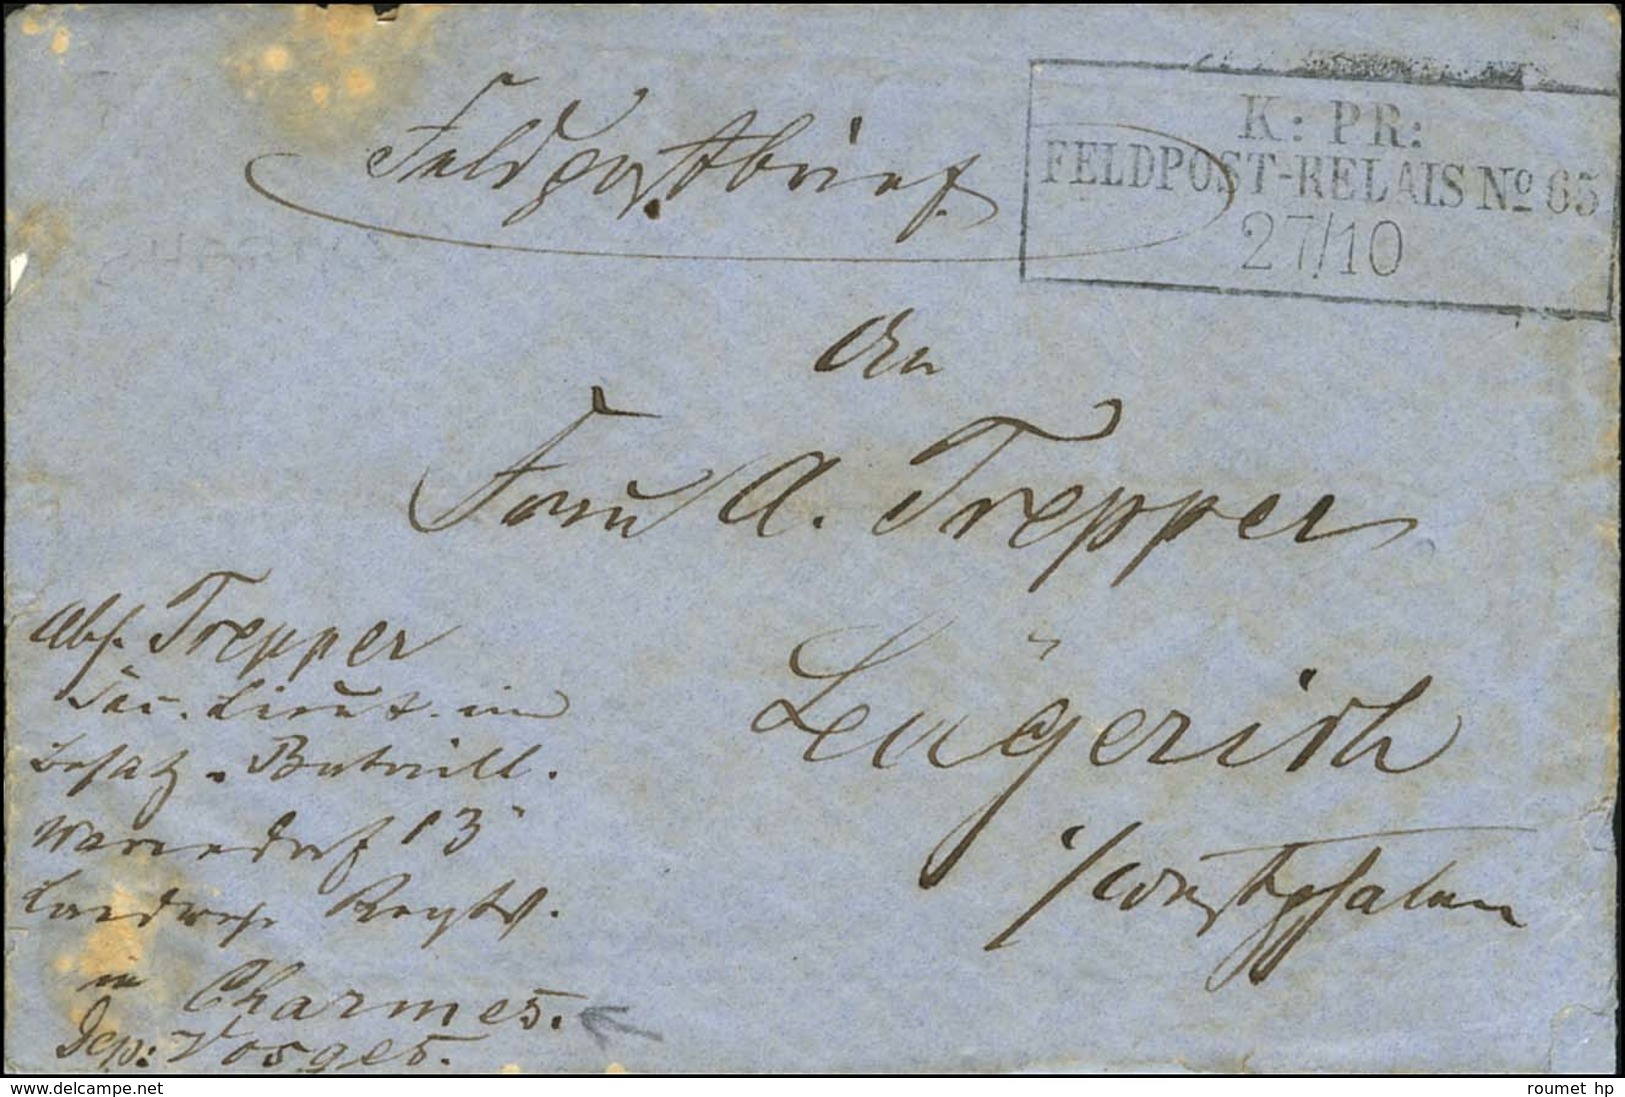 Feldpostbrief.
K: PR:
FELDPOST-RELAIS No 65
27/10
An
Frau A. Trepper
Lengerich
i/Westphalen
Abs. Trepper
Sec. Lieut. im
Besatz. Bataill.
Warendorf 13
Landw. Regts.
in Charmes.
Dep: Vosges.
www.delcampe.net
roumet hp